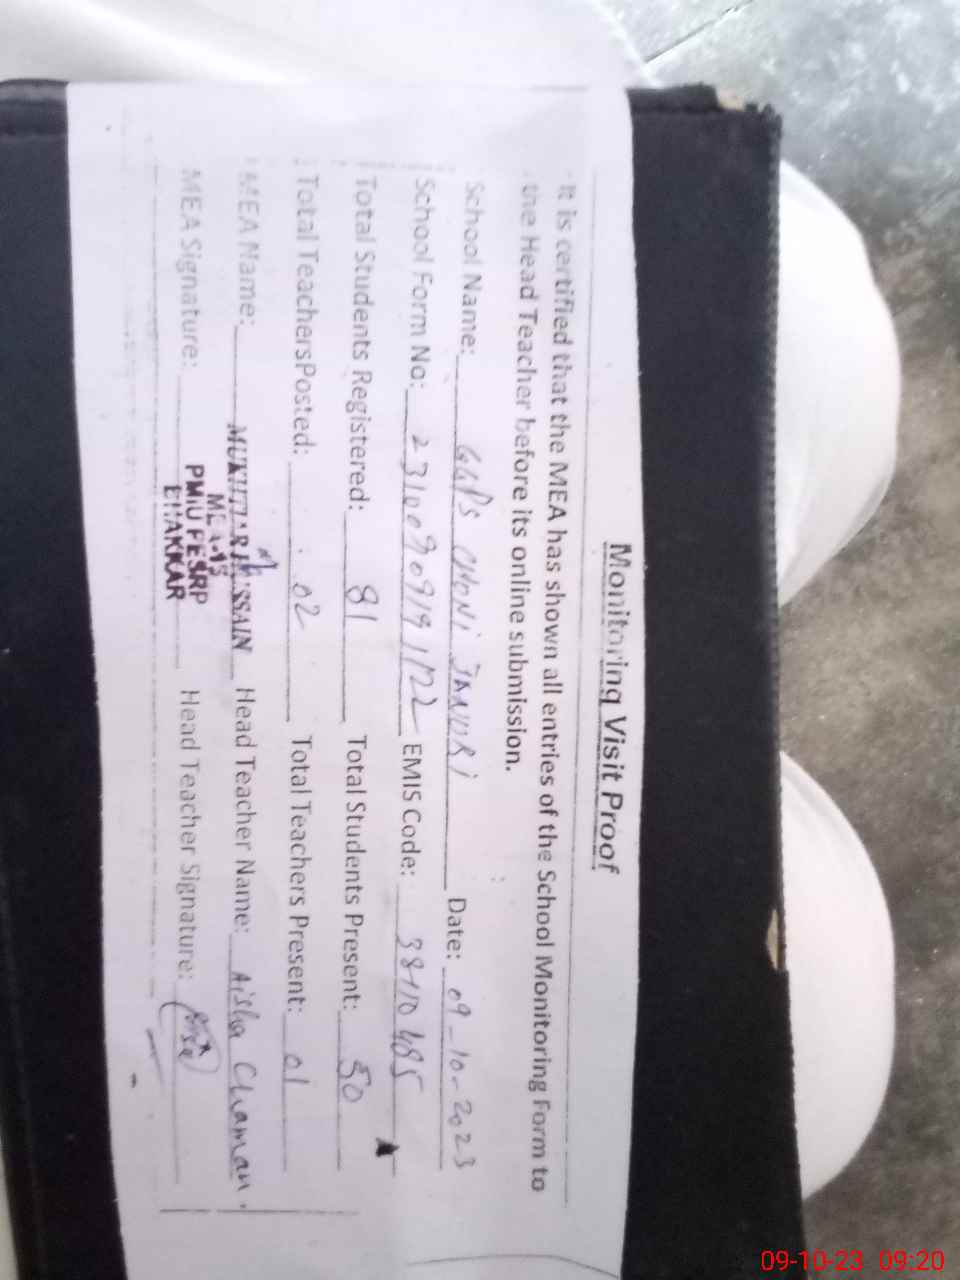 Monitoring Visit Proof
It is certified that the MEA has shown all entries of the School Monitoring Form to
the Head Teacher before its online submission.
School Name: GGPS CHONI JANUBI Date: 09-10-2023
School Form No: EMIS Code: 38110485
Total Students Registered: 81 Total Students Present: 50
Total TeachersPosted: 02 Total Teachers Present: 01
MEA Name: MUKHTIAR HUSSAIN Head Teacher Name: Aisha Chaman.
MEA Signature: Head Teacher Signature:
MEA-15
PMIU PESRP
BHAKKAR
09-10-23 09:20